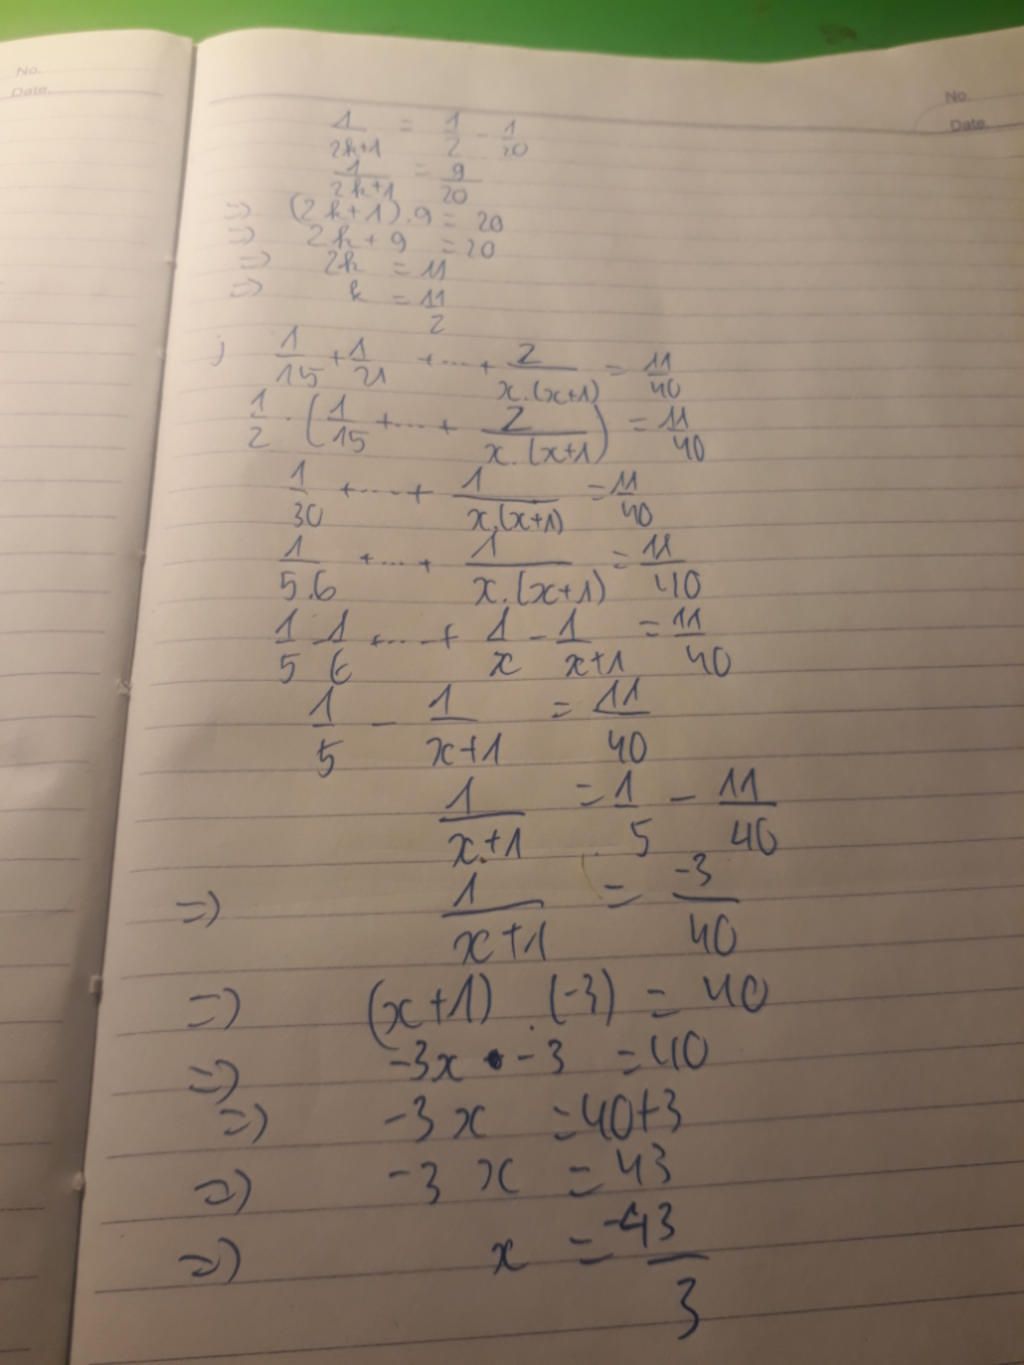 No.
Date.
No.
Date.
1/(2k+1) = 1/2 - 1/20
1/(2k+1) = 9/20
=> (2k+1).9 = 20
=> 2k + 9 = 20
=> 2k = 11
=> k = 11/2
j 1/15 + 1/21 + ... + 2/(x.(x+1)) = 11/40
1/2 . (1/15 + ... + 2/(x.(x+1))) = 11/40
1/30 + ... + 1/(x.(x+1)) = 11/40
1/5.6 + ... + 1/(x.(x+1)) = 11/40
1/5 - 1/6 + ... + 1/x - 1/(x+1) = 11/40
1/5 - 1/(x+1) = 11/40
1/(x+1) = 1/5 - 11/40
=> 1/(x+1) = -3/40
=> (x+1) . (-3) = 40
=> -3x - 3 = 40
=> -3x = 40+3
=> -3x = 43
=> x = -43/3